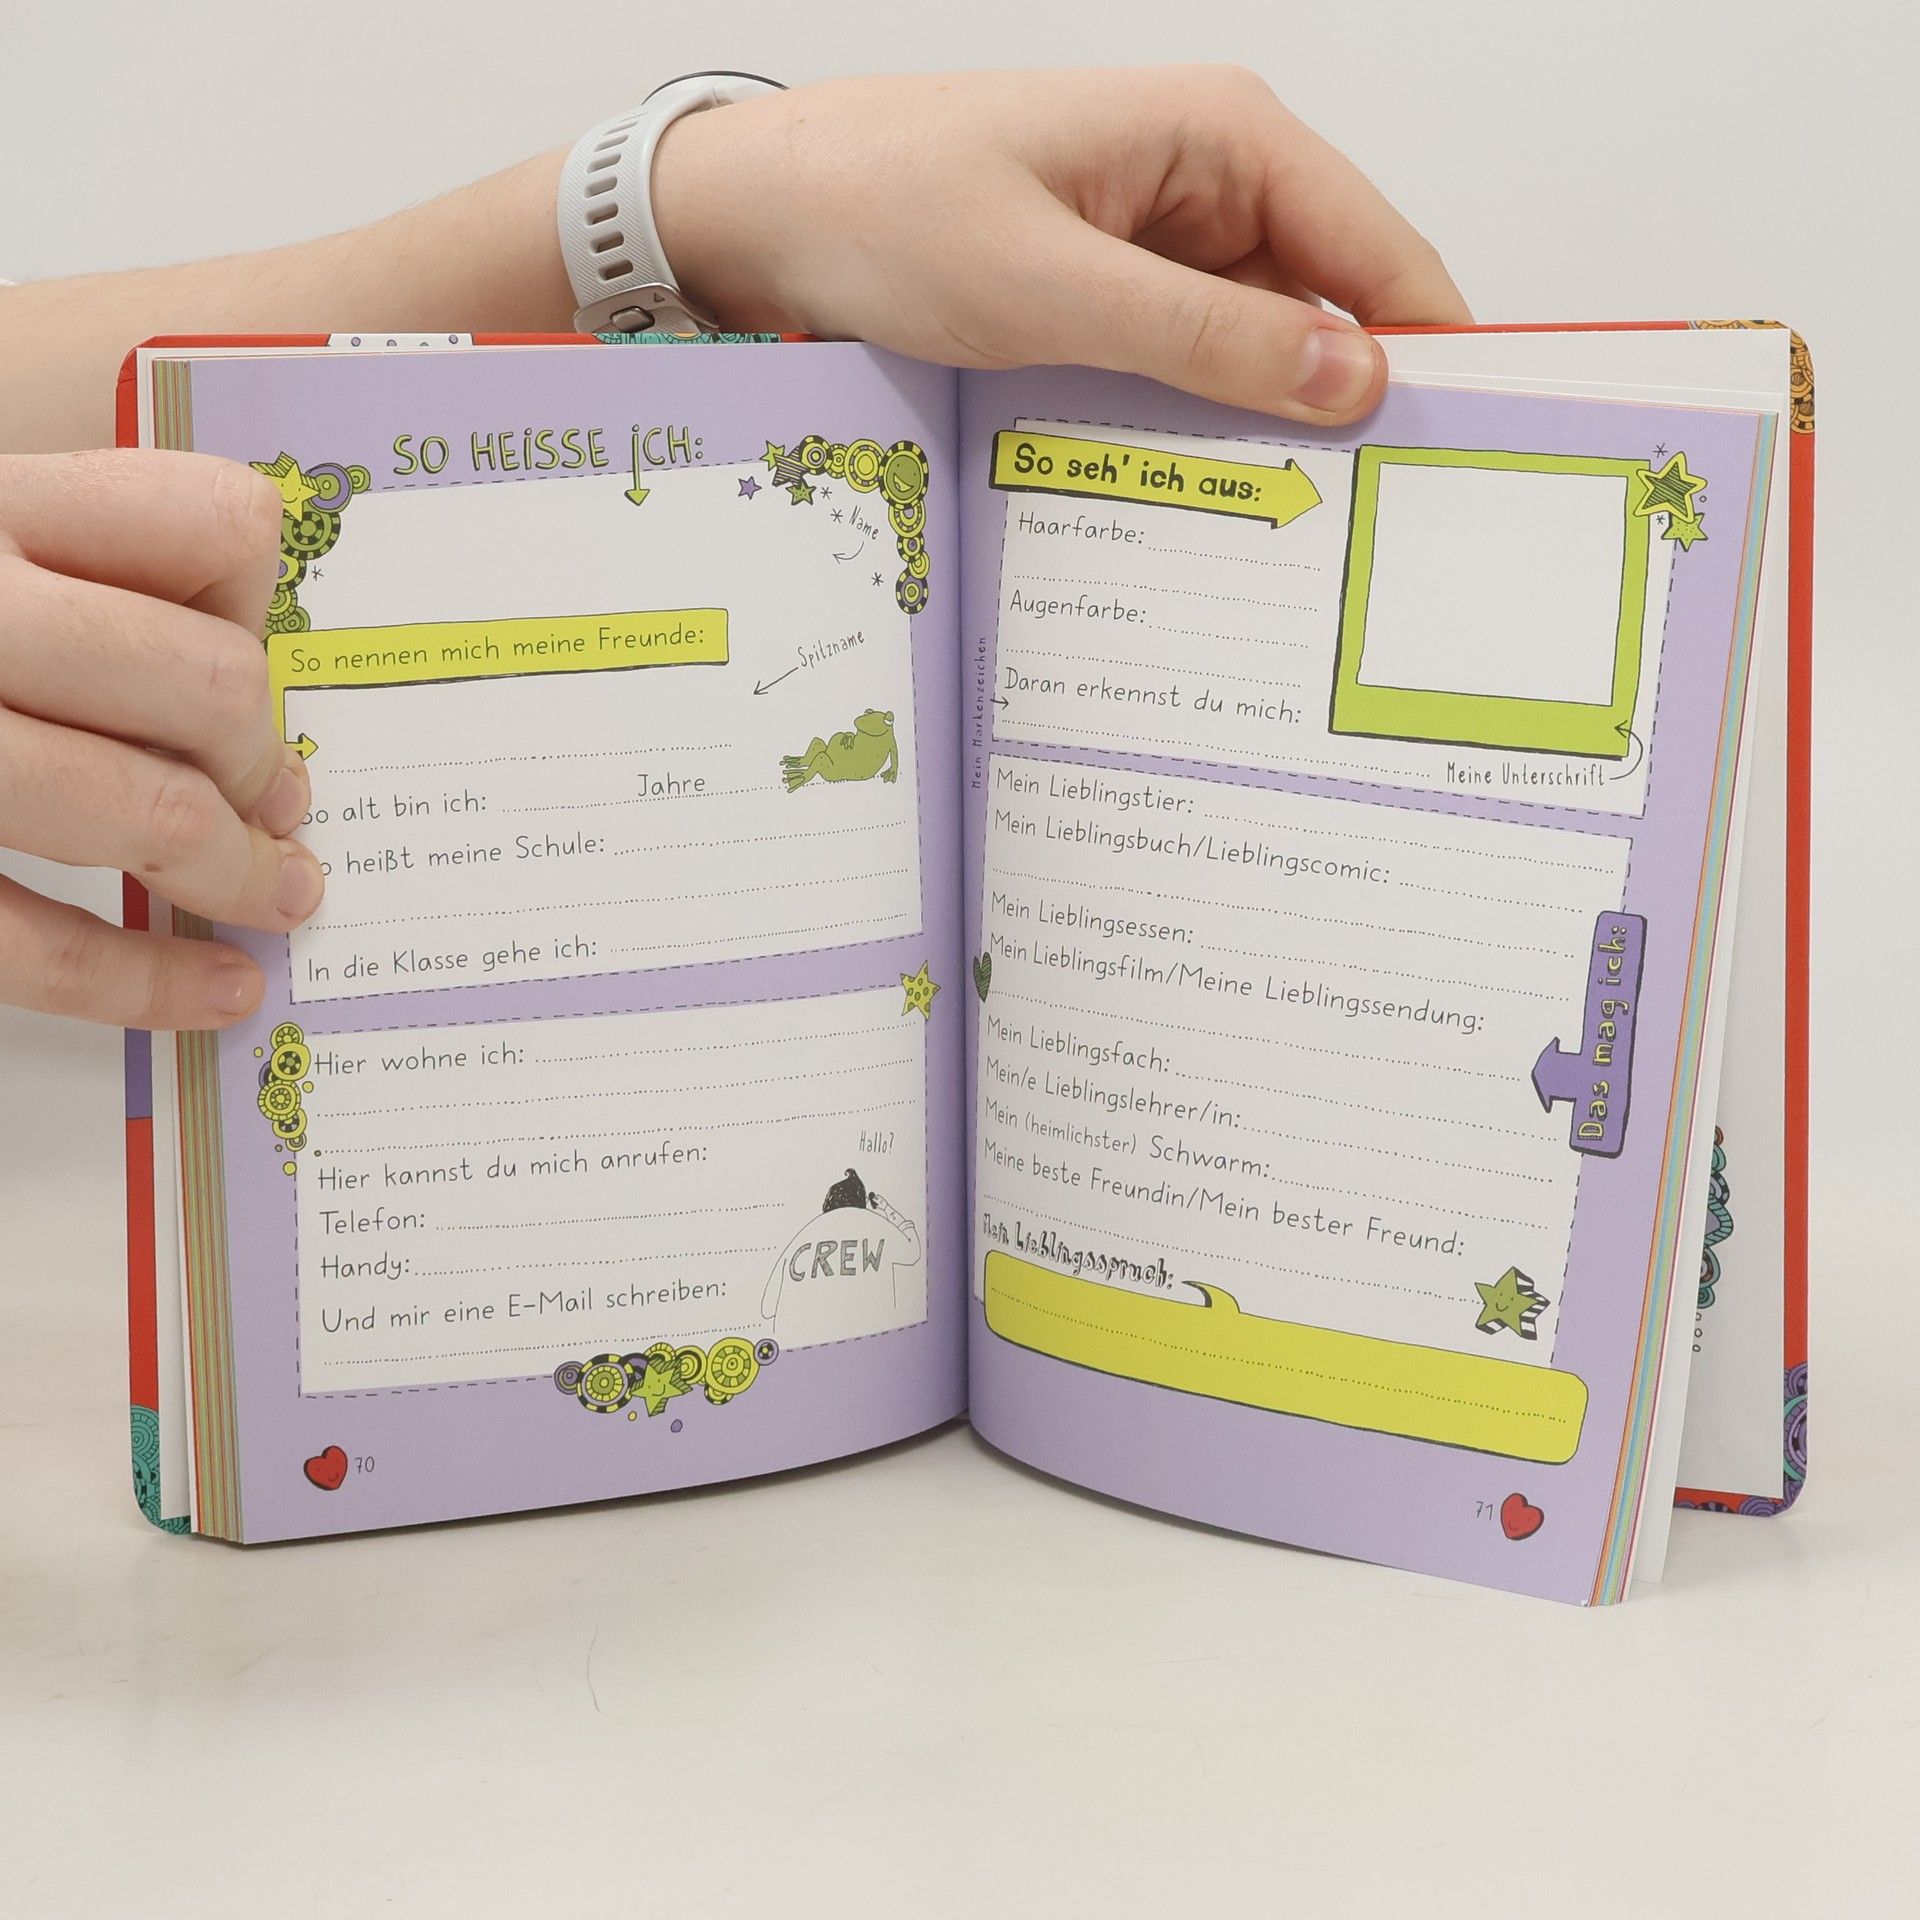 SO HEISSE ICH:
Name
So nennen mich meine Freunde:
Spitzname
So alt bin ich: Jahre
heißt meine Schule:
In die Klasse gehe ich:
Hier wohne ich:
Hier kannst du mich anrufen:
Hallo?
Telefon:
CREW
Handy:
Und mir eine E-Mail schreiben:
70
So seh' ich aus:
Haarfarbe:
Augenfarbe:
Daran erkennst du mich:
Mein Markenzeichen
Meine Unterschrift
Mein Lieblingstier:
Mein Lieblingsbuch/Lieblingscomic:
Mein Lieblingsessen:
Mein Lieblingsfilm/Meine Lieblingssendung:
Das mag ich:
Mein Lieblingsfach:
Mein/e Lieblingslehrer/in:
Mein (heimlichster) Schwarm:
Meine beste Freundin/Mein bester Freund:
Mein Lieblingsspruch:
71